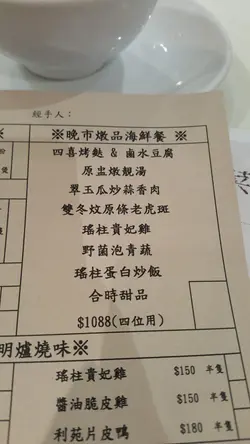 經手人：
※晚市燉品海鮮餐 ※
四喜烤麩 & 鹵水豆腐
原盅燉靚湯
翠玉瓜炒蒜香肉
雙冬炆原條老虎斑
瑤柱貴妃雞
野菌泡青蔬
瑤柱蛋白炒飯
合時甜品
$1088(四位用)
明爐燒味※
瑤柱貴妃雞 $150 半隻
醬油脆皮雞 $150 半隻
利苑片皮鴨 $180 半隻